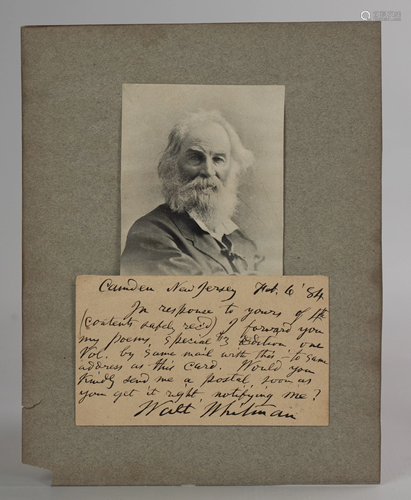 Camden New Jersey Feb. 6 '84
In response to yours of
(contents safely rec'd) I forward you
my poems, Special $3 Edition one
Vol. by same mail with this - to same
address as this card. Would you
kindly send me a postal, soon as
you get it right, notifying me?
Walt Whitman